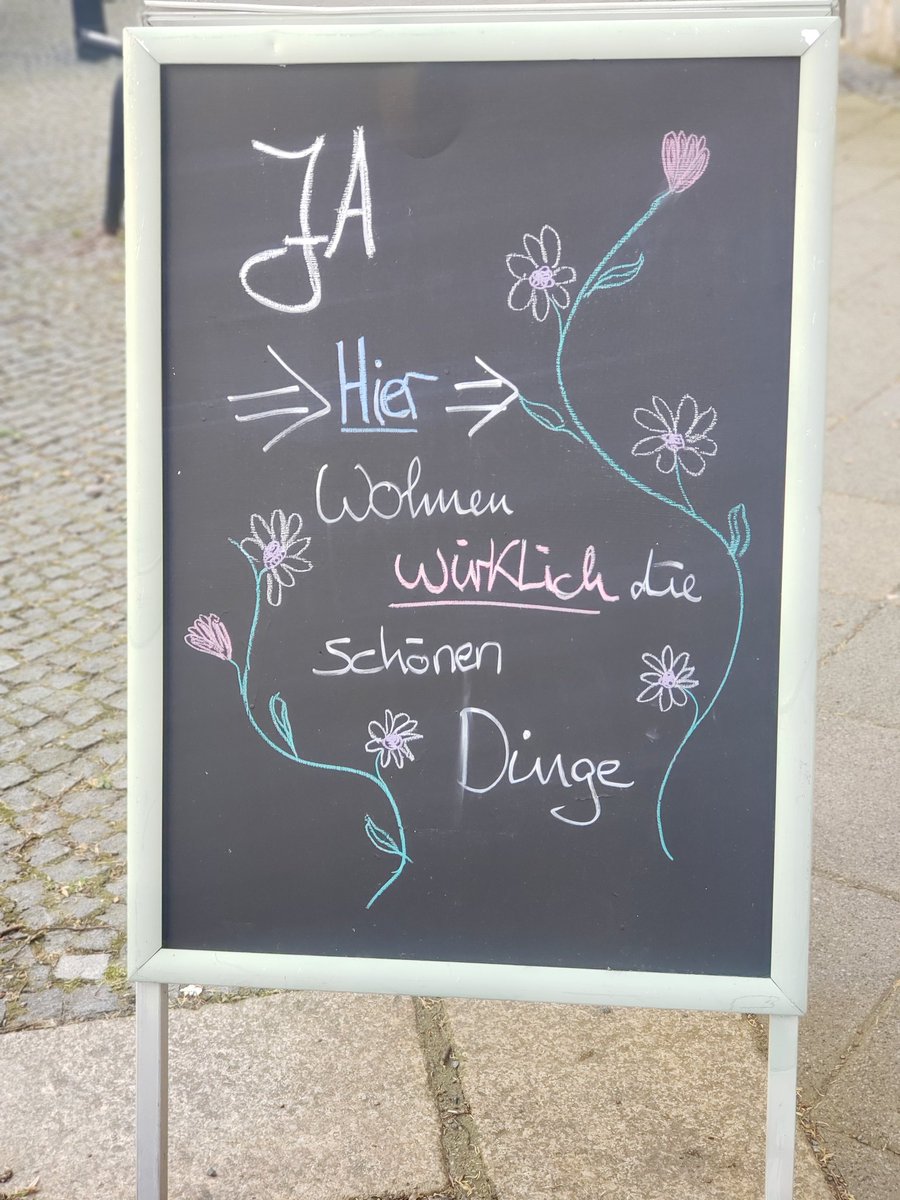 JA
⇒ Hier ⇒
Wohnen
wirklich die
schönen
Dinge